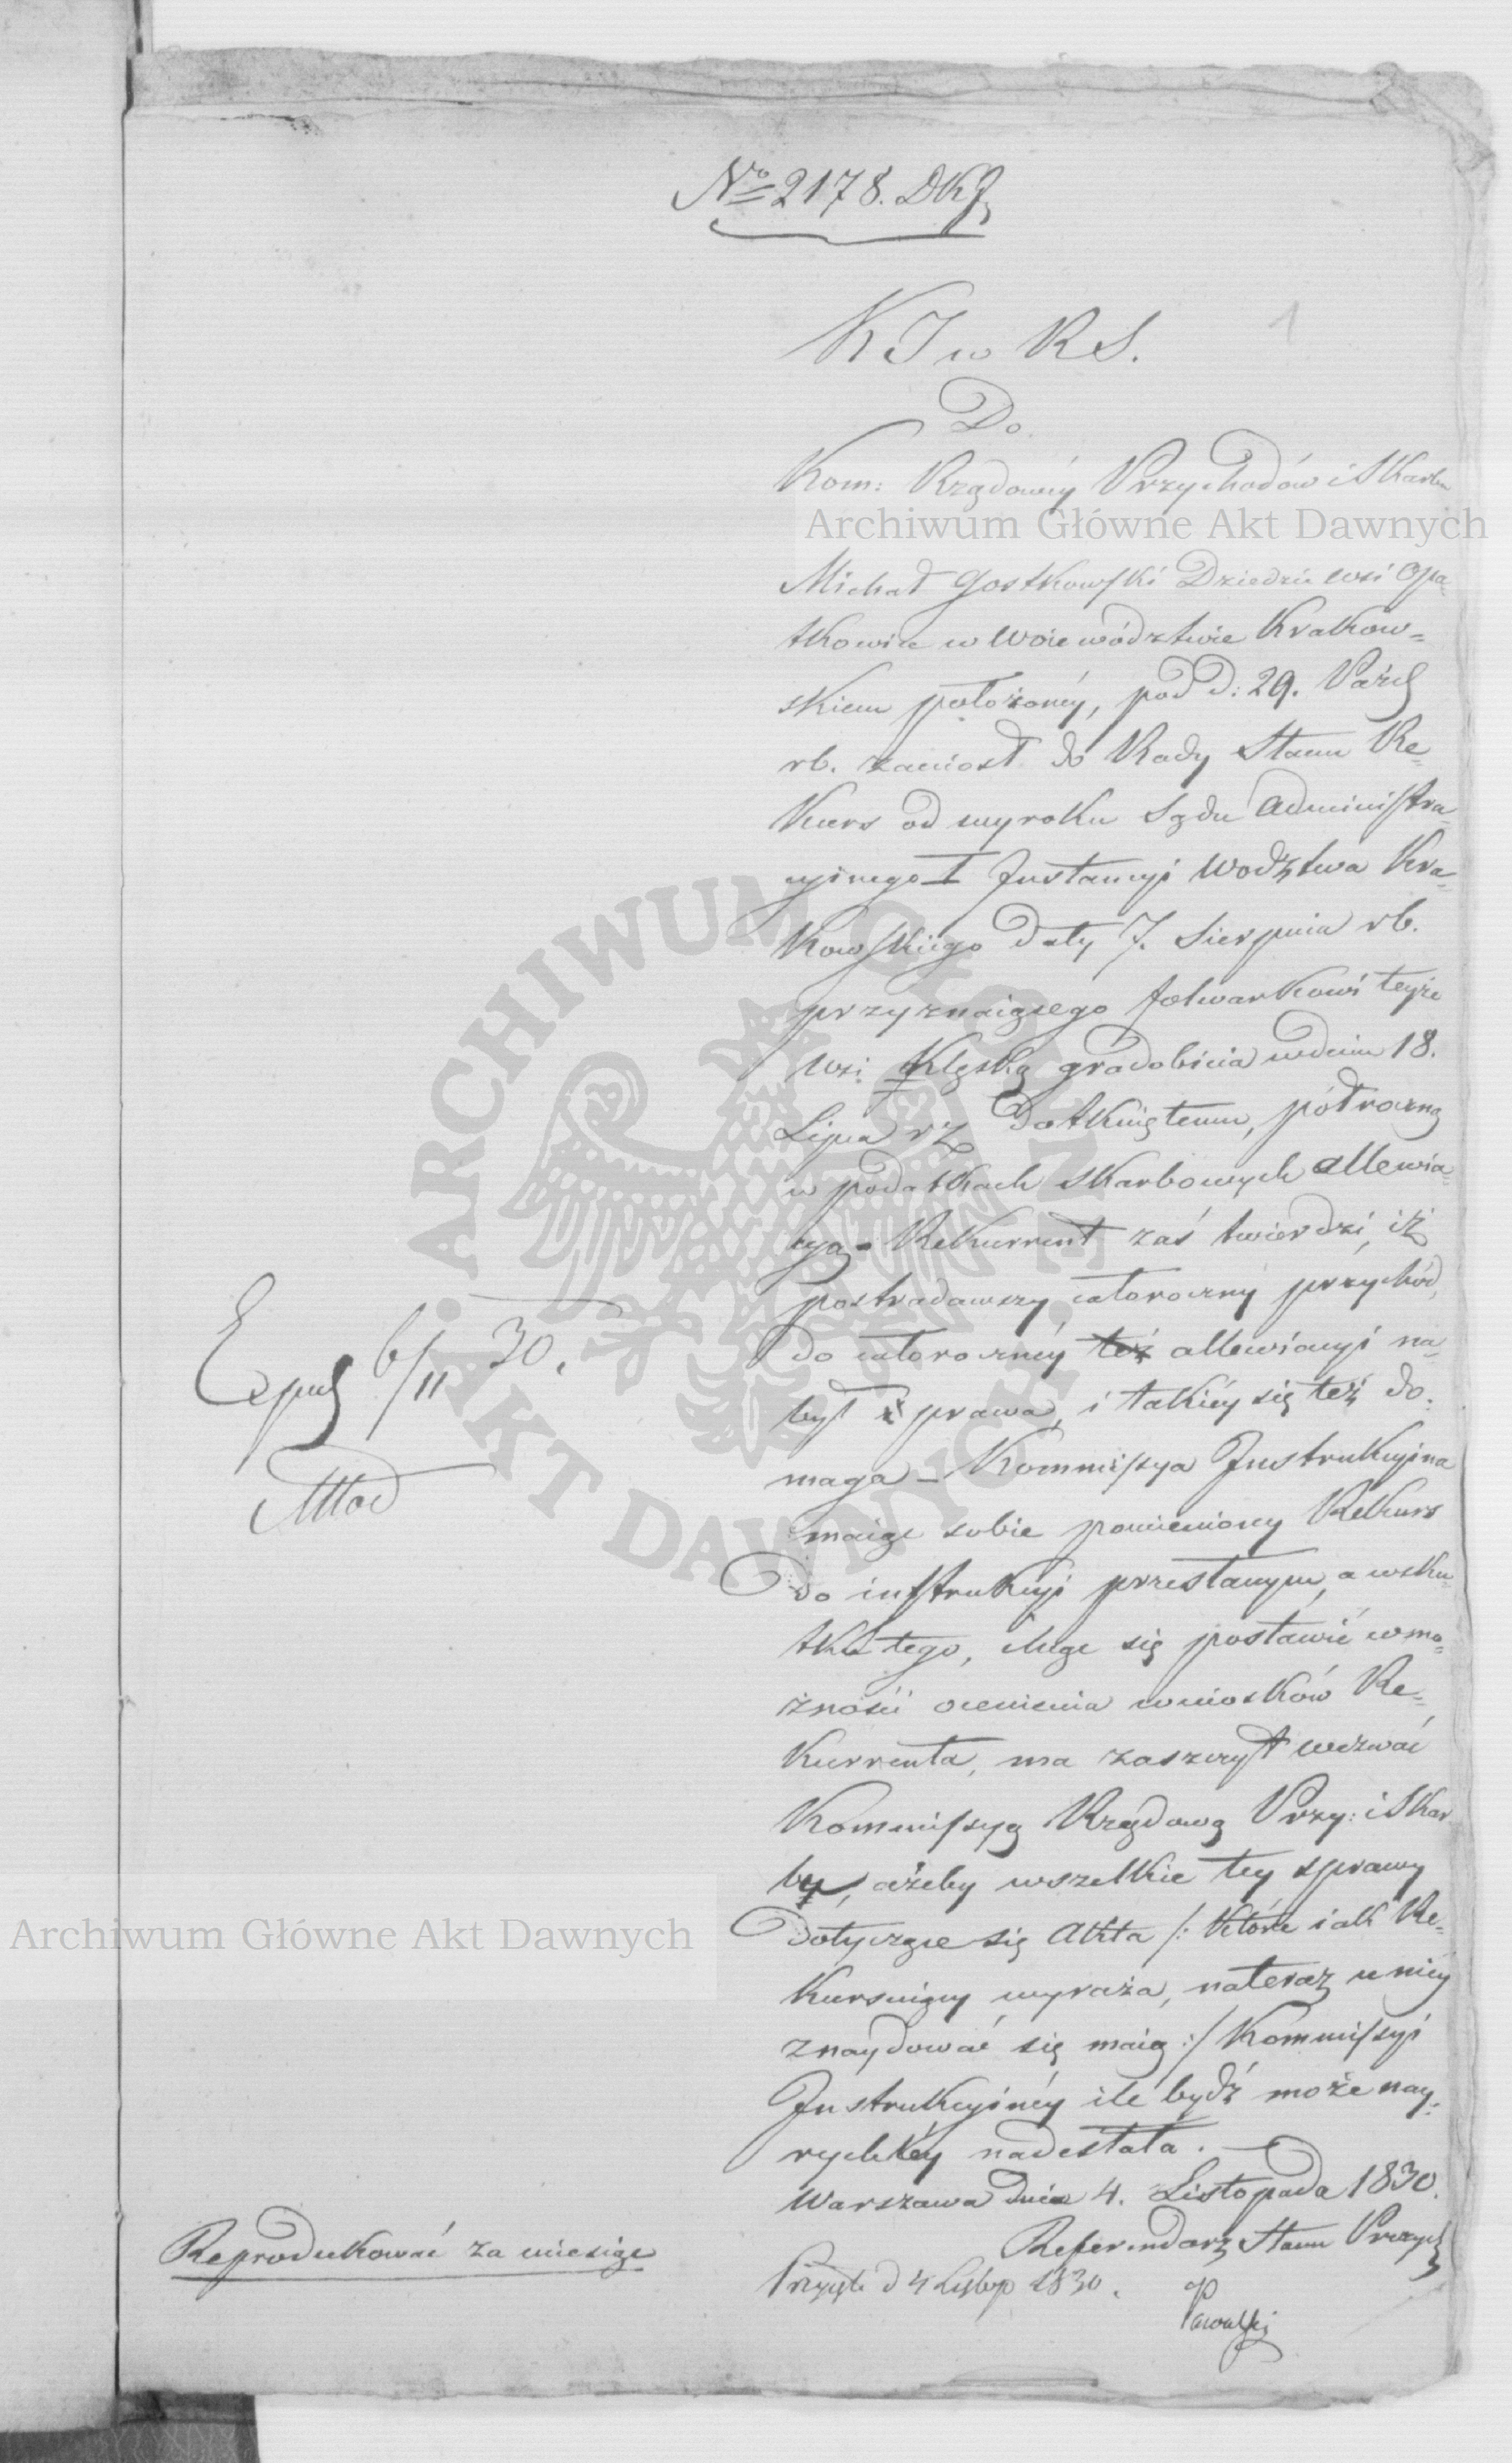 No 2178. DKJ
1
K J w R S.
Do
Kom: Rządowéy Przychodów i Skarbu
Archiwum Główne Akt Dawnych
Michał Gostkowski Dziedzic wsi Opa-
tkowice w Woiewództwie Krakow-
skiem położonéy, pod d: 29. Paźd
rb. zaniosł do Rady Stanu Re-
kurs od wyroku Sądu Administra-
cyinego I Instancyi Wodztwa Kra-
kowskiego daty 7. Sierpnia rb.
przyznaiącego folwarkowi teyże
wsi klęską gradobicia w dniu 18.
Lipca rz dotkniętemu, półroczną
w podatkach skarbowych allewia-
cyą - Rekurrent zaś twierdzi, iż
postradawszy całoroczny przychód,
do całorocznéy też allewiacyi na-
był prawa, i takiéy się też do-
maga - Kommissya Instrukcyina
maiąc sobie pomieniony Rekurs
do instrukcyi przesłanym, a wsku-
tku tego, chcąc się postawić w mo-
żności ocenienia wniosków Re-
kurrenta, ma zaszczyt wezwać
Kommissyą Rządową Przy: i Skar
by, ażeby wszelkie tey sprawy
Archiwum Główne Akt Dawnych
dotyczące się Akta /: które iak Re-
kursuiący wyraża, nateraz u niéy
znaydować się maią :/ Kommissyi
Instrukcyinéy ile bydź może nay-
rychléy nadesłała. -
Warszawa dnia 4. Listopada 1830.
Referendarz Stanu Prezyd
Przyięto d 4 Listop 1830.
Exped 6/11 30.
Reprodukować za miesiąc
ARCHIWUM GŁÓWNE AKT DAWNYCH